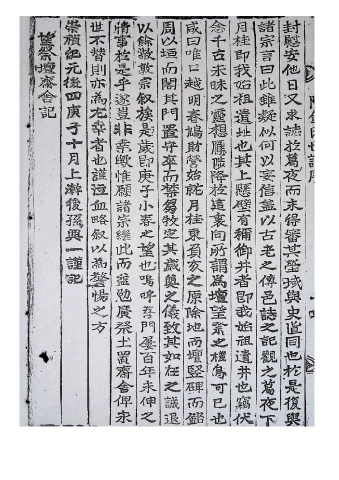 封慰安他日又求誌於葛夜而未得審其塋域與史近同也於是復與
諸宗言曰此雖疑似何以妄信盖以古老之傳邑誌之記觀之葛夜下
月桂即我始祖遺址也其上懸壁有稱御井者即我始祖遺井也竊伏
念千古未昧之靈想應陟降於這裏向所謂爲壇望祭之禮烏可已也
咸曰唯唯越明春鳩財營始就月桂東負亥之原除地而壇竪碑而銘
周以垣而閣其門置守卒而禁芻牧迄其歲奠之儀致其如在之誠退
以餘教敦宗叙族是歲即庚子小春之望也嗚呼吾門屢百年未伸之
情事於是乎遂豈非幸歟惟願諸宗繼此而益勉廣祭土置齋舍俾永
世不替則亦爲尤幸者也謹泣血略叙以爲警惕之方
崇禎紀元後四庚子十月上澣後孫興一謹記
望祭壇齋舍記